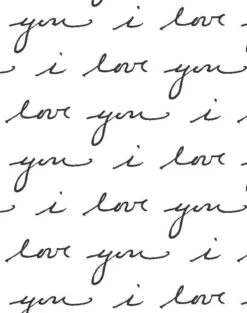 you i love
i love you
love you i
you i love
i love you
love you i
you i love